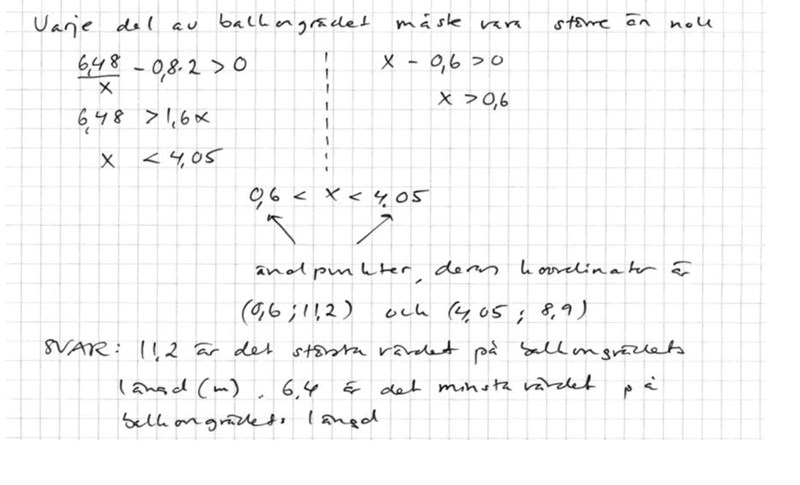 Varje del av balkongrädet måste vara större än noll
6,48/x - 0,8·2 > 0
x - 0,6 > 0
6,48 > 1,6x
x > 0,6
x < 4,05
0,6 < x < 4,05
ändpunkter, deras koordinater är
(0,6 ; 11,2) och (4,05 ; 8,9)
SVAR: 11,2 är det största värdet på balkongräckets
längd (m). 6,4 är det minsta värdet på
balkongräckets längd